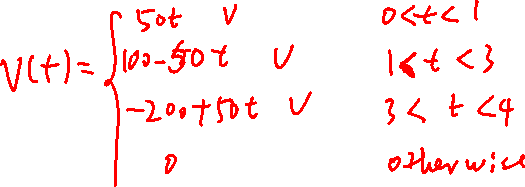 50t V 0<t<1
V(t)= 100-50t V 1<t<3
-200+50t V 3<t<4
0 otherwise